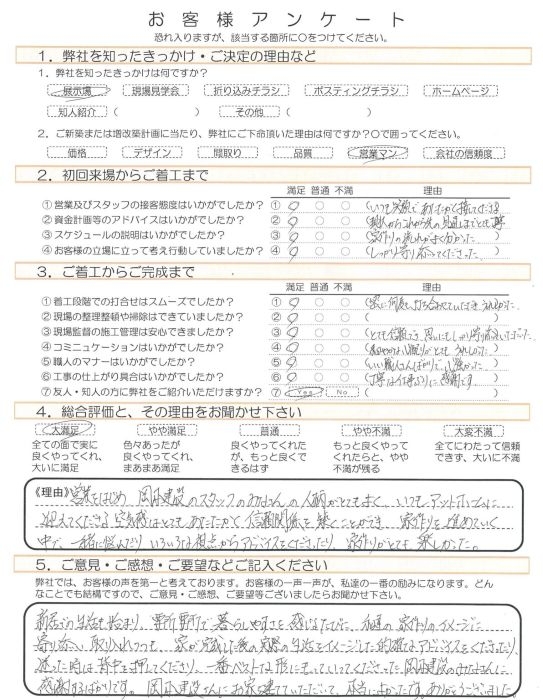 お客様アンケート
恐れ入りますが、該当する箇所に○をつけてください。
1．弊社を知ったきっかけ・ご決定の理由など
1．弊社を知ったきっかけは何ですか？
展示場 現場見学会 折り込みチラシ ポスティングチラシ ホームページ
知人紹介（ ） その他（ ）
2．ご新築または増改築計画に当たり、弊社にご下命頂いた理由は何ですか？○で囲ってください。
価格 デザイン 間取り 品質 営業マン 会社の信頼度
2．初回来場からご着工まで
満足 普通 不満 理由
①営業及びスタッフの接客態度はいかがでしたか？ ① ○ ○ （いつも笑顔であたたかく接してくださ
②資金計画等のアドバイスはいかがでしたか？ ② ○ ○
③スケジュールの説明はいかがでしたか？ ③ ○ ○ （家作りの流れがよく分かった。）
④お客様の立場に立って考え行動していましたか？ ④ ○ ○ （しっかり寄り添ってくださった。）
3．ご着工からご完成まで
満足 普通 不満 理由
①着工段階での打合せはスムーズでしたか？ ① ○ ○
②現場の整理整頓や掃除はできていましたか？ ② ○ ○ （ ）
③現場監督の施工管理は安心できましたか？ ③ ○ ○
④コミニュケーションはいかがでしたか？ ④ ○ ○
⑤職人のマナーはいかがでしたか？ ⑤ ○ ○
⑥工事の仕上がり具合はいかがでしたか？ ⑥ ○ ○ （丁寧な仕事ぶりに感謝です
⑦友人・知人の方に弊社をご紹介いただけますか？ ⑦ Yes No
4．総合評価と、その理由をお聞かせ下さい
大満足 やや満足 普通 やや不満 大変不満
全ての面で実に 色々あったが 良くやってくれた もっと良くやって 全てにわたって信頼
良くやってくれ、 良くやってくれ、 が、もっと良くで くれたらと、やや できず、大いに不満
大いに満足 まあまあ満足 きるはず 不満が残る
《理由》営業をはじめ、岡本建設のスタッフのみなさんの人柄がとてもよく、いつもアットホームに
迎えてくださる空気感はとてもあたたかく信頼関係を築くことができ、家作りを進めていく
中で、一緒に悩んだり、いろいろな視点からアドバイスをくださったり、家作りがとても楽しかった。
5．ご意見・ご感想・ご要望などご記入ください
弊社では、お客様の声を第一と考えております。お客様の一声一声が、私達の一番の励みになります。どん
なことでも結構ですので、ご意見、ご感想、ご要望等ございましたらお聞かせ下さい。
新居での生活も始まり、要所要所で暮らしやすさを感じるたびに、私達の家作りのイメージに
寄り添い、取り入れつつも、家が完成した後の実際の生活をイメージした的確なアドバイスをくださったり、
迷った時は背中を押してくださり、一番ベストな形にもっていってくださった岡本建設のみなさんに
感謝するばかりです。岡本建設さんにお家を建てていただいて、本当によかったです。ありがとうございました